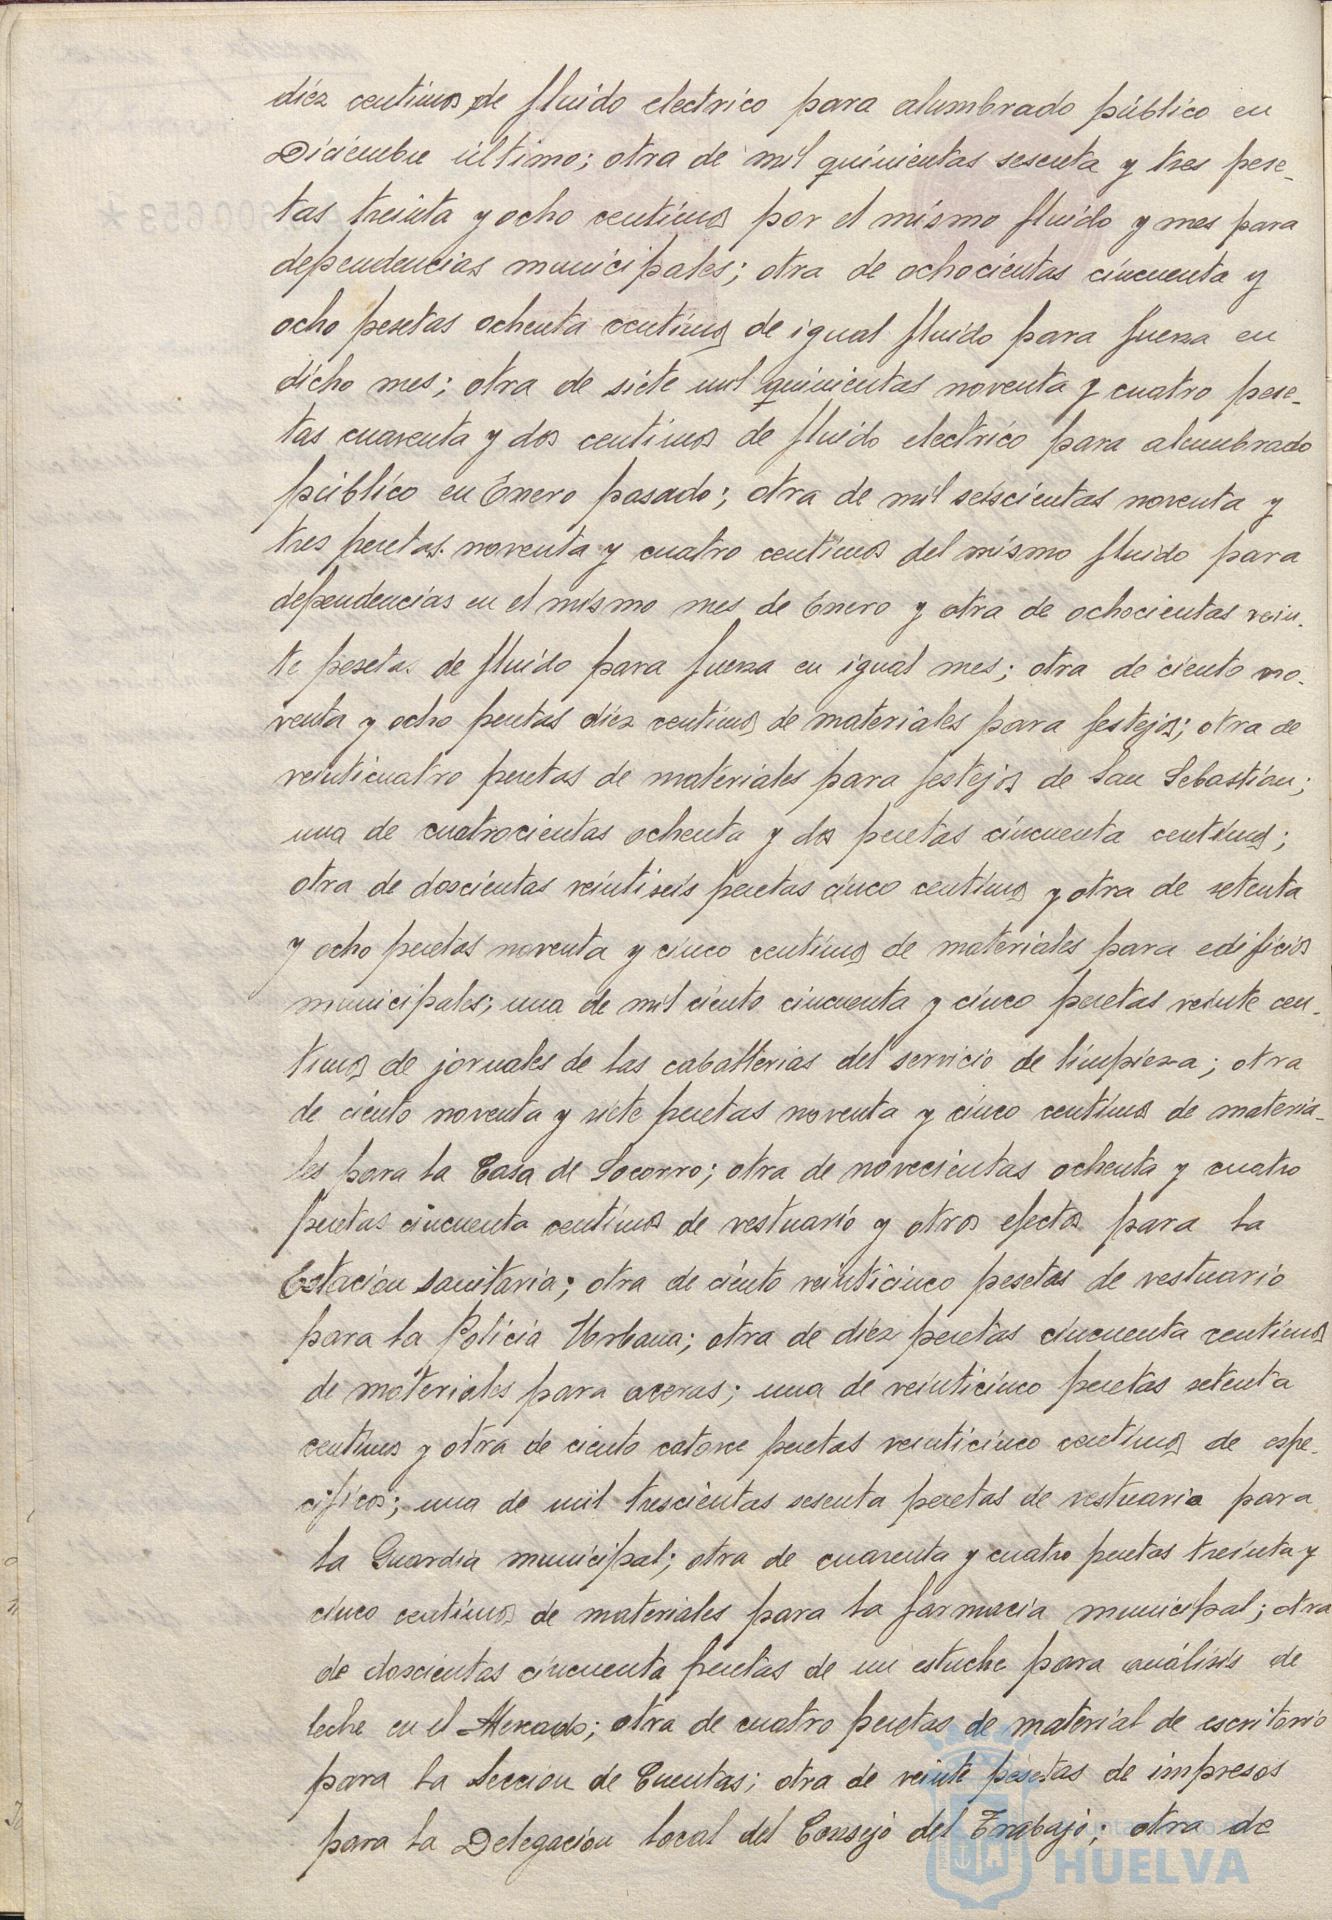 diez centimos, de fluido electrico para alumbrado público en
Diciembre último; otra de mil quinientas sesenta y tres pese-
tas treinta y ocho centimos por el mismo fluido y mes para
dependencias municipales; otra de ochocientas cincuenta y
ocho pesetas ochenta centimos de igual fluido para fuerza en
dicho mes; otra de siete mil quinientas noventa y cuatro pese-
tas cuarenta y dos centimos de fluido electrico para alumbrado
público en Enero pasado; otra de mil seiscientas noventa y
tres pesetas noventa y cuatro centimos del mismo fluido para
dependencias en el mismo mes de Enero y otra de ochocientas vein-
te pesetas de fluido para fuerza en igual mes; otra de ciento no-
venta y ocho pesetas diez centimos de materiales para festejos; otra de
veinticuatro pesetas de materiales para festejos de San Sebastian;
una de cuatrocientas ochenta y dos pesetas cincuenta centimos;
otra de doscientas veintiseis pesetas cinco centimos y otra de setenta
y ocho pesetas noventa y cinco centimos de materiales para edificios
municipales; una de mil ciento cincuenta y cinco pesetas veinte cen-
timos de jornales de las caballerias del servicio de limpieza; otra
de ciento noventa y siete pesetas noventa y cinco centimos de materia-
les para la Casa de Socorro; otra de novecientas ochenta y cuatro
pesetas cincuenta centimos de vestuario y otros efectos para la
Estacion sanitaria; otra de ciento veinticinco pesetas de vestuario
para la Policia Urbana; otra de diez pesetas cincuenta centimos
de materiales para aceras; una de veinticinco pesetas setenta
centimos y otra de ciento catorce pesetas veinticinco centimos de espe-
cificos; una de mil trescientas sesenta pesetas de vestuario para
la Guardia municipal; otra de cuarenta y cuatro pesetas treinta y
cinco centimos de materiales para la farmacia municipal; otra
de doscientas cincuenta pesetas de un estuche para análisis de
leche en el Mercado; otra de cuatro pesetas de material de escritorio
para la Seccion de Cuentas; otra de veinte pesetas de impresos
para la Delegación local del Consejo del Trabajo; otra de
HUELVA